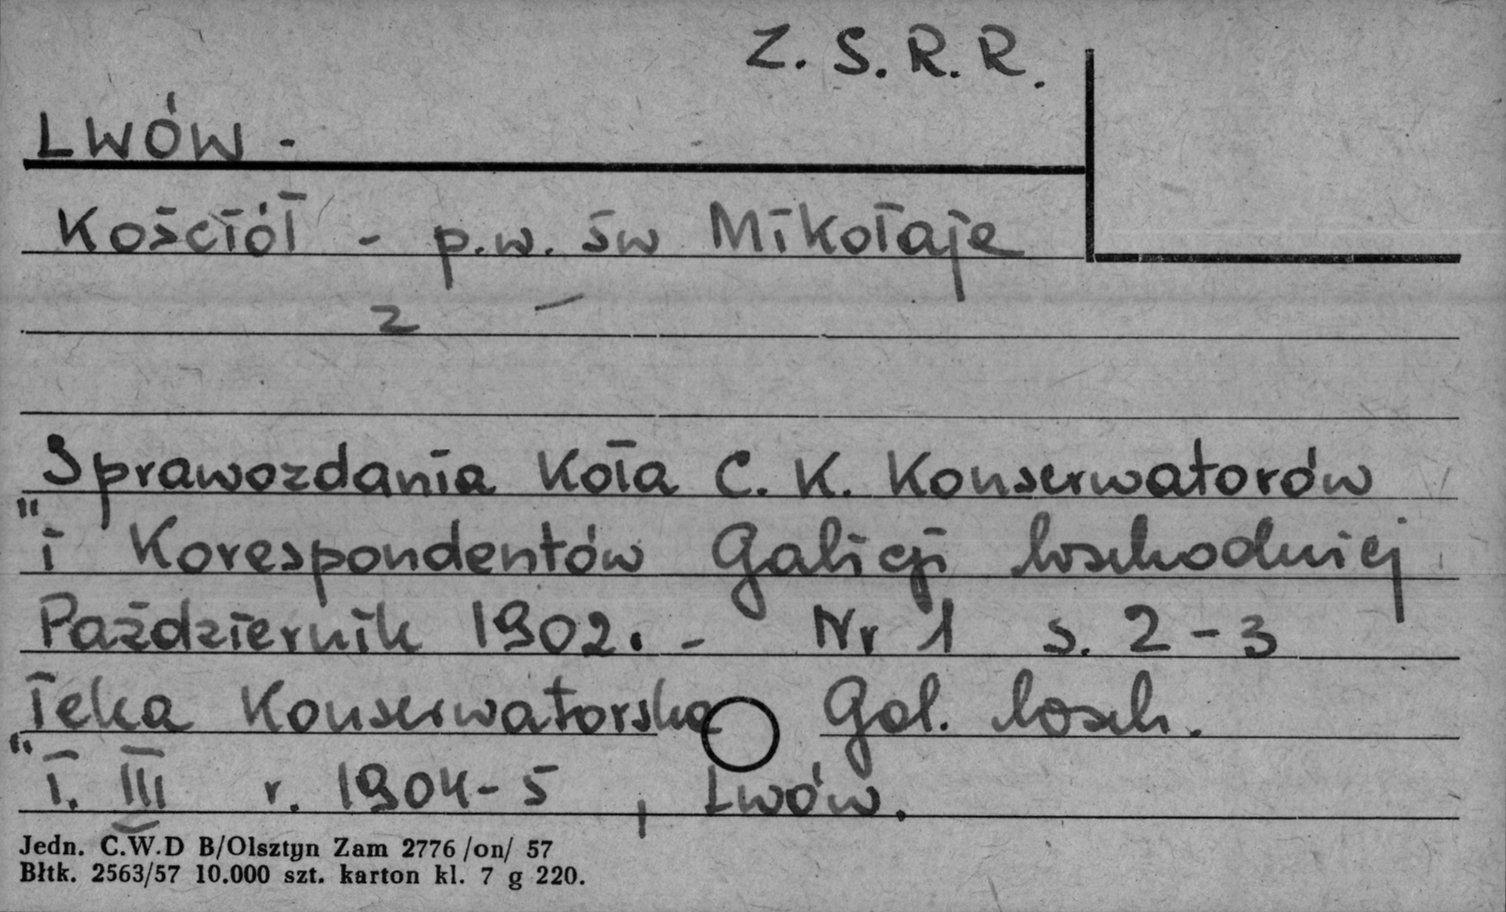 Z. S. R. R.
LWÓW -
Kościół - p.w. św Mikołaja
2 -
Sprawozdania Koła C. K. Konserwatorów
" i Korespondentów Galicji Wschodniej
Październik 1902. - Nr 1 s. 2-3
Teka Konserwatorska Gal. Wsch.
" T. III r. 1904-5, Lwów.
Jedn. C.W.D B/Olsztyn Zam 2776 /on/ 57
Błtk. 2563/57 10.000 szt. karton kl. 7 g 220.